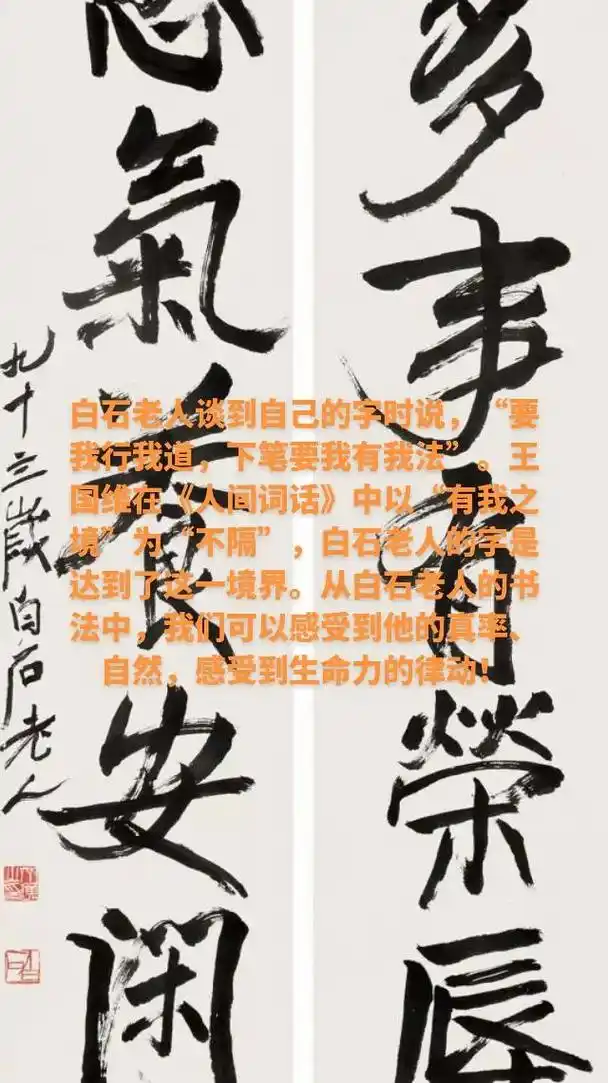 多事有榮辱
氣養安閑
九十三歲白石老人
白石老人谈到自己的字时说，“要
我行我道，下笔要我有我法”。王
国维在《人间词话》中以“有我之
境”为“不隔”，白石老人的字是
达到了这一境界。从白石老人的书
法中，我们可以感受到他的真率、
自然，感受到生命力的律动！